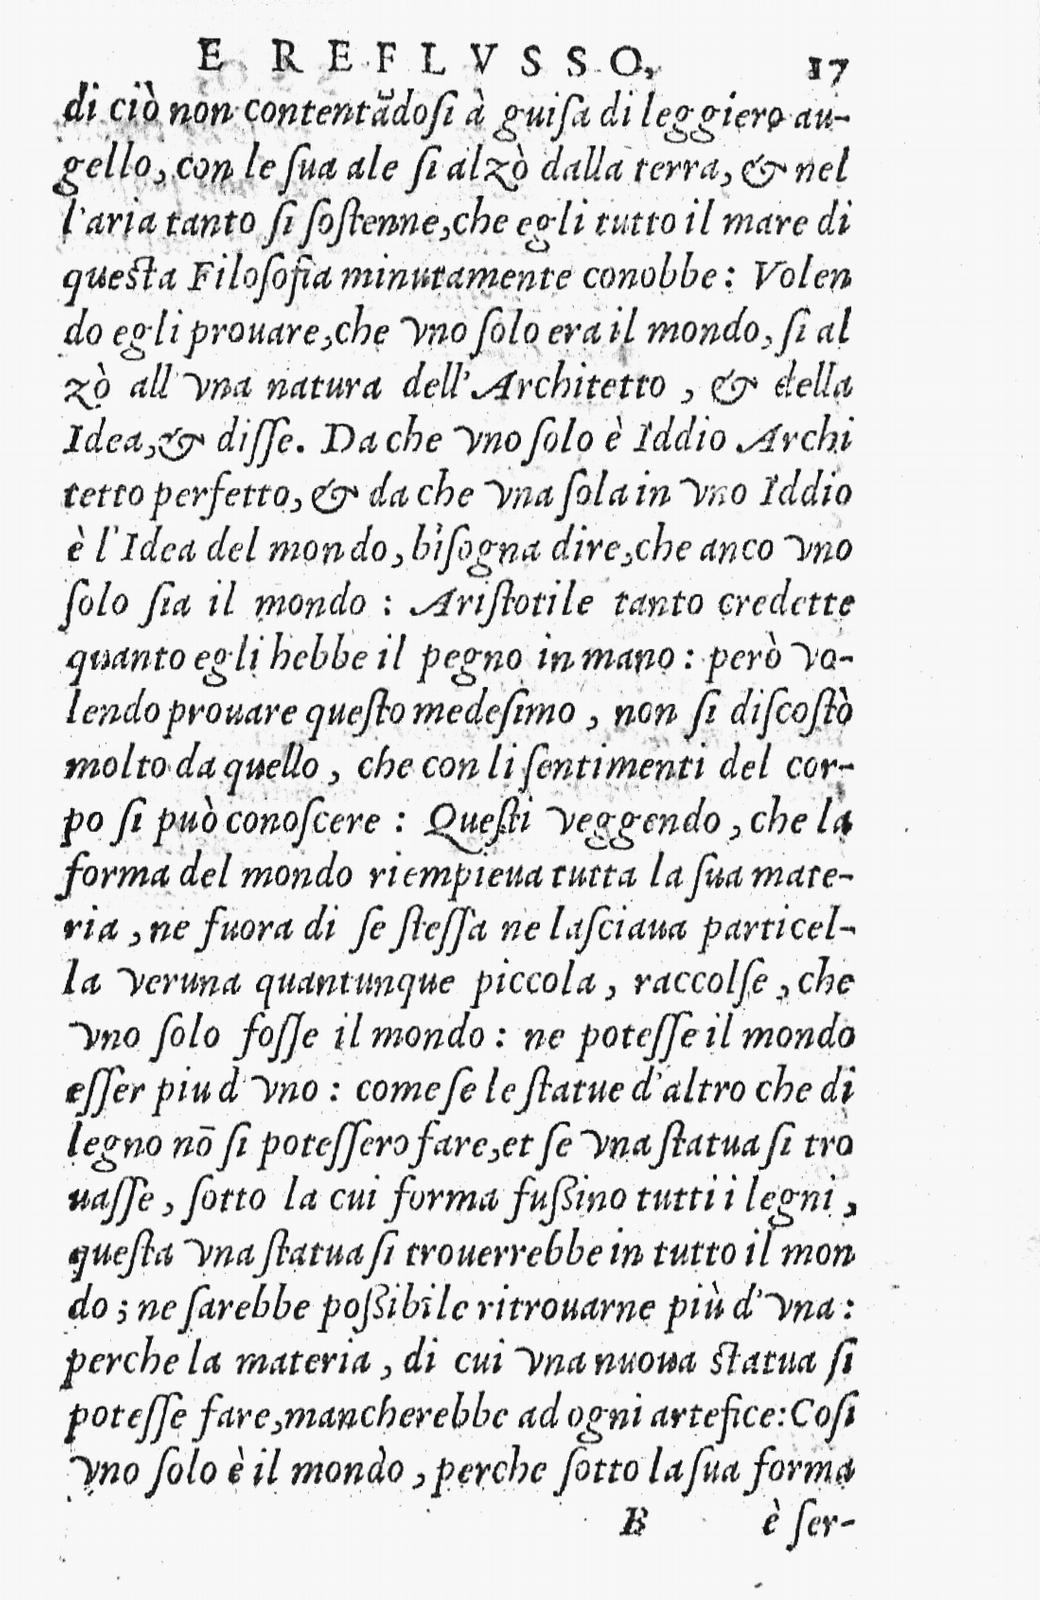 E REFLVSSO, 17
di ciò non contentādosi à guiſa di leggiero au-
gello, con le ſua ale ſi alzò dalla terra, & nel
l'aria tanto ſi ſoſtenne, che egli tutto il mare di
queſta Filoſofia minutamente conobbe: Volen
do egli prouare, che vno ſolo era il mondo, ſi al
zò all vna natura dell'Architetto, & della
Idea, & diſſe. Da che vno ſolo è Iddio Archi
tetto perfetto, & da che vna ſola in vno Iddio
è l'Idea del mondo, biſogna dire, che anco vno
ſolo ſia il mondo: Ariſtotile tanto credette
quanto egli hebbe il pegno in mano: però vo-
lendo prouare queſto medeſimo, non ſi diſcoſtò
molto da quello, che con li ſentimenti del cor-
po ſi può conoſcere: Queſti veggendo, che la
forma del mondo riempieua tutta la ſua mate-
ria, ne fuora di ſe ſteſſa ne laſciaua particel-
la veruna quantunque piccola, raccolſe, che
vno ſolo foſſe il mondo: ne poteſſe il mondo
eſſer piu d'vno: come ſe le ſtatue d'altro che di
legno nō ſi poteſſero fare, et ſe vna ſtatua ſi tro
uaſſe, ſotto la cui forma fußino tutti i legni,
queſta vna ſtatua ſi trouerrebbe in tutto il mon
do; ne ſarebbe poßibile ritrouarne più d'vna:
perche la materia, di cui vna nuoua ſtatua ſi
poteſſe fare, mancherebbe ad ogni artefice: Coſi
vno ſolo è il mondo, perche ſotto la ſua forma
B è ſer-